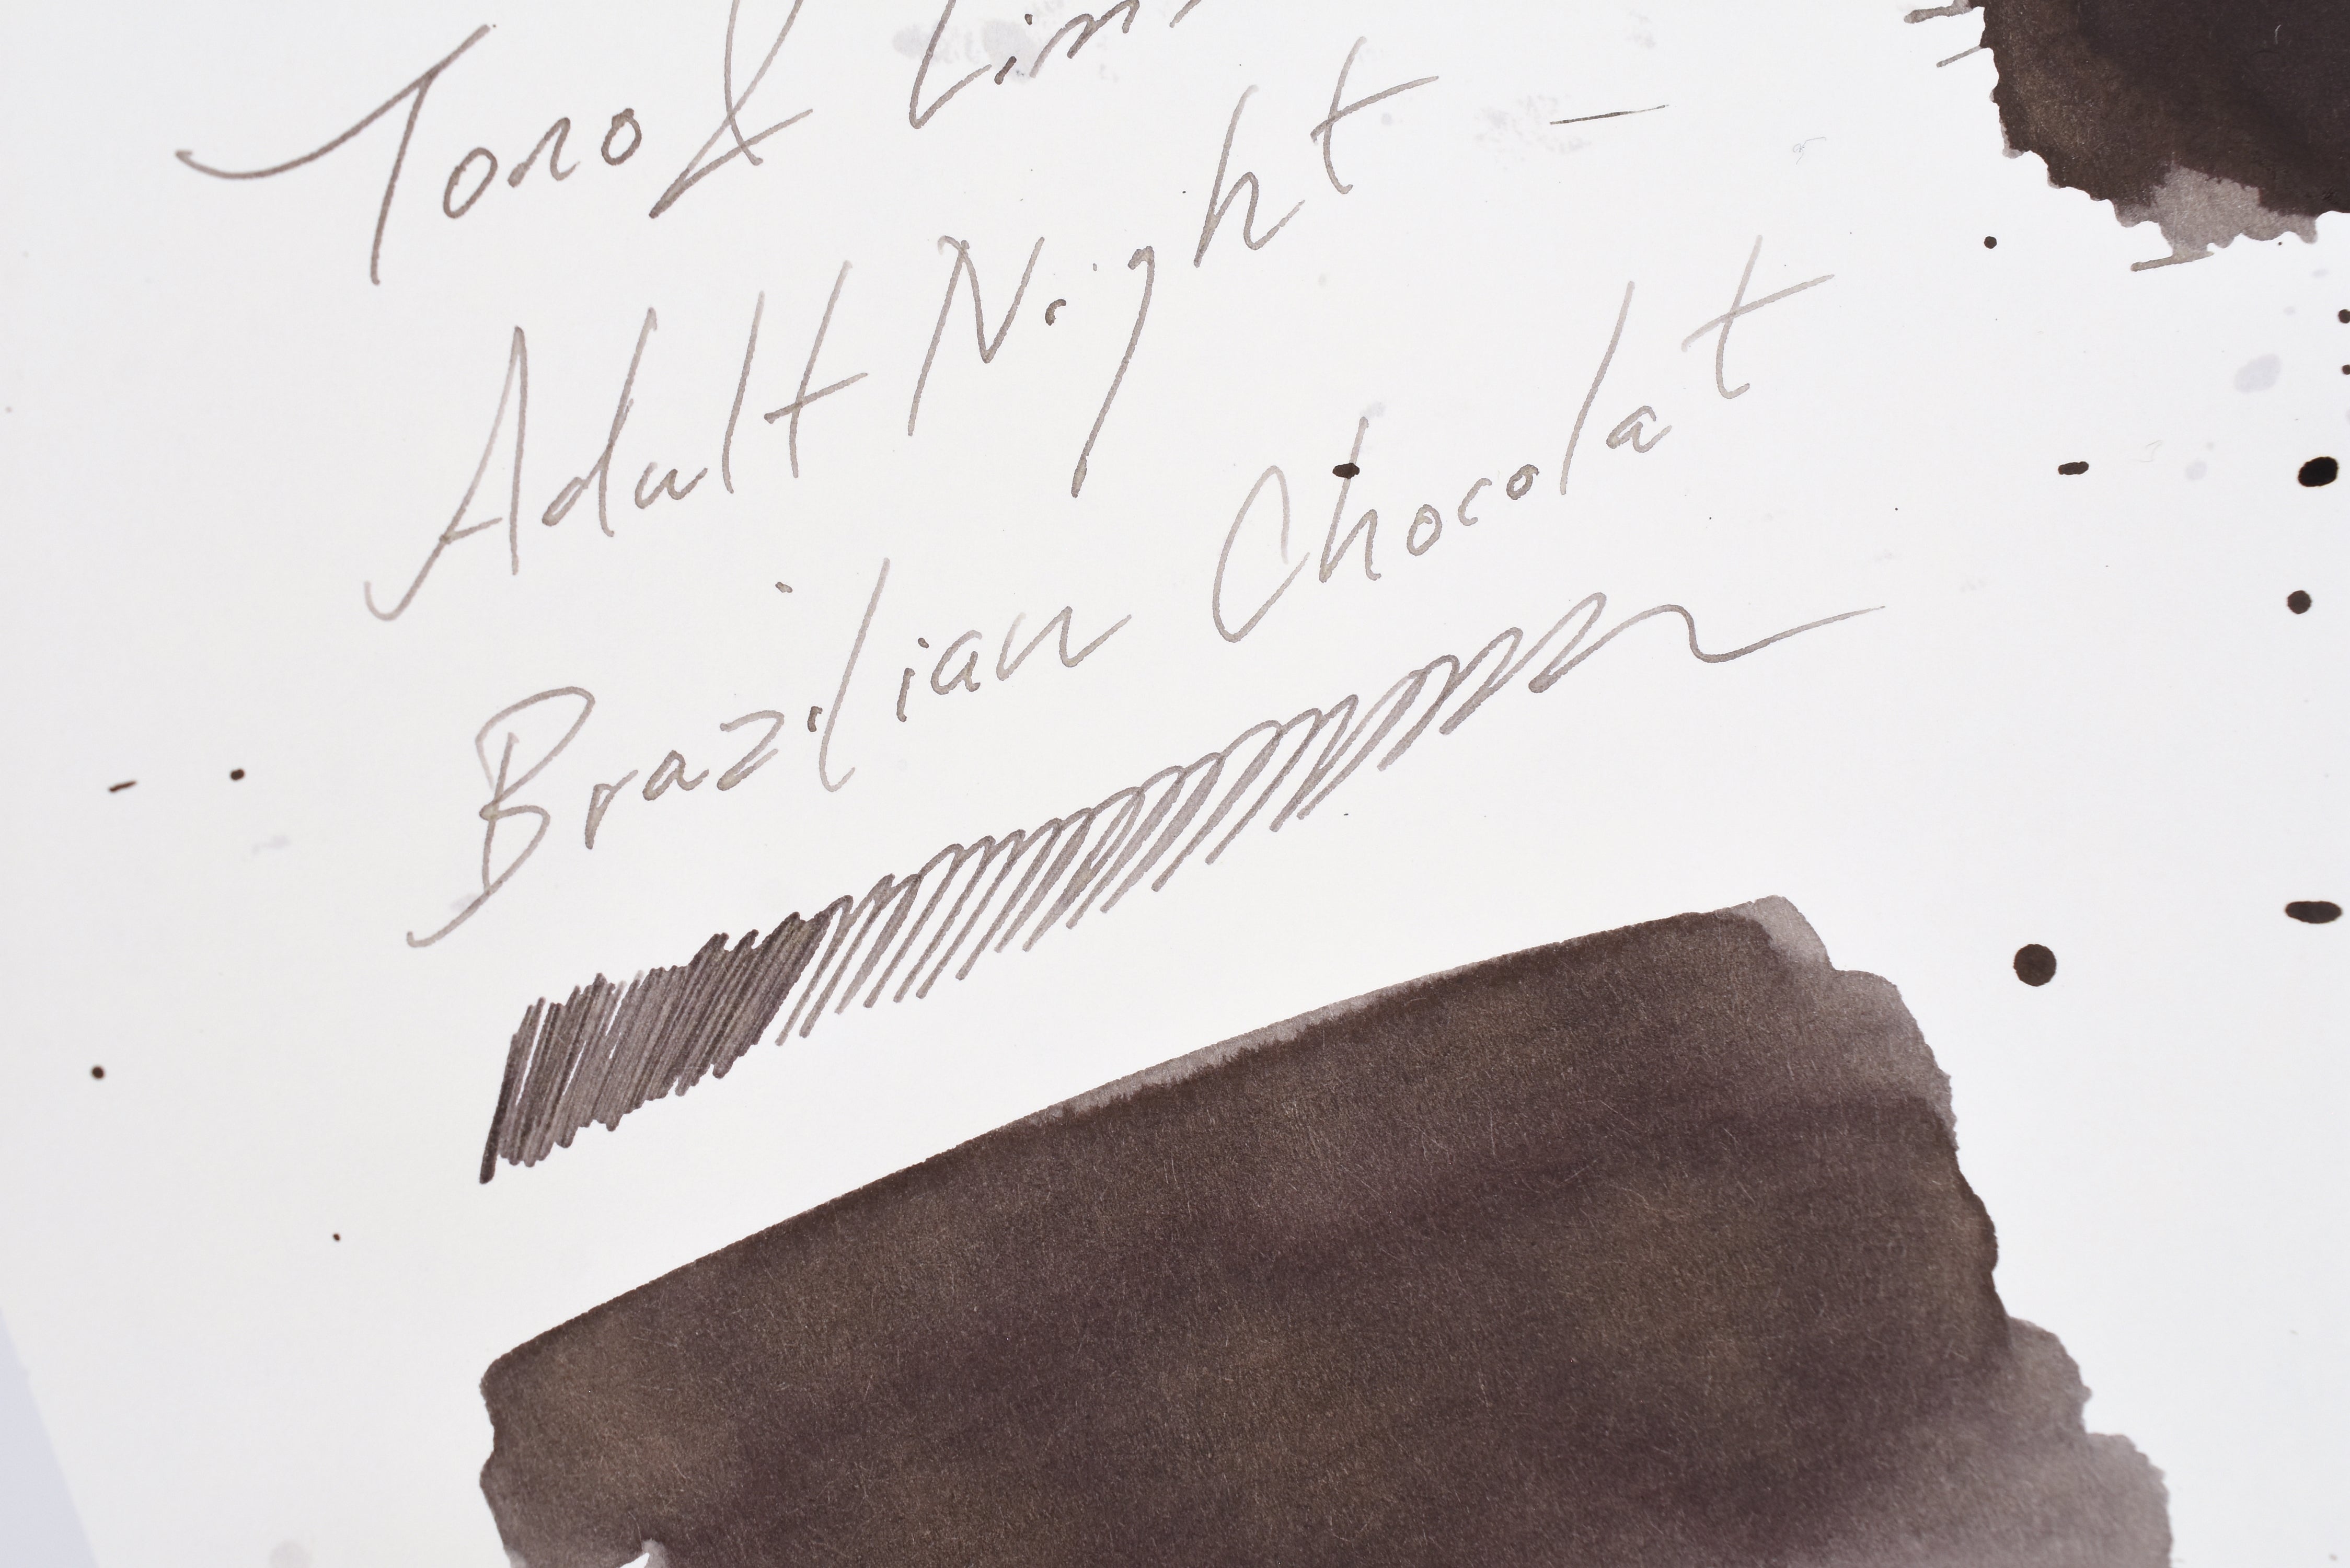 Tono & Lims
Adult Night –
Brazilian Chocolat